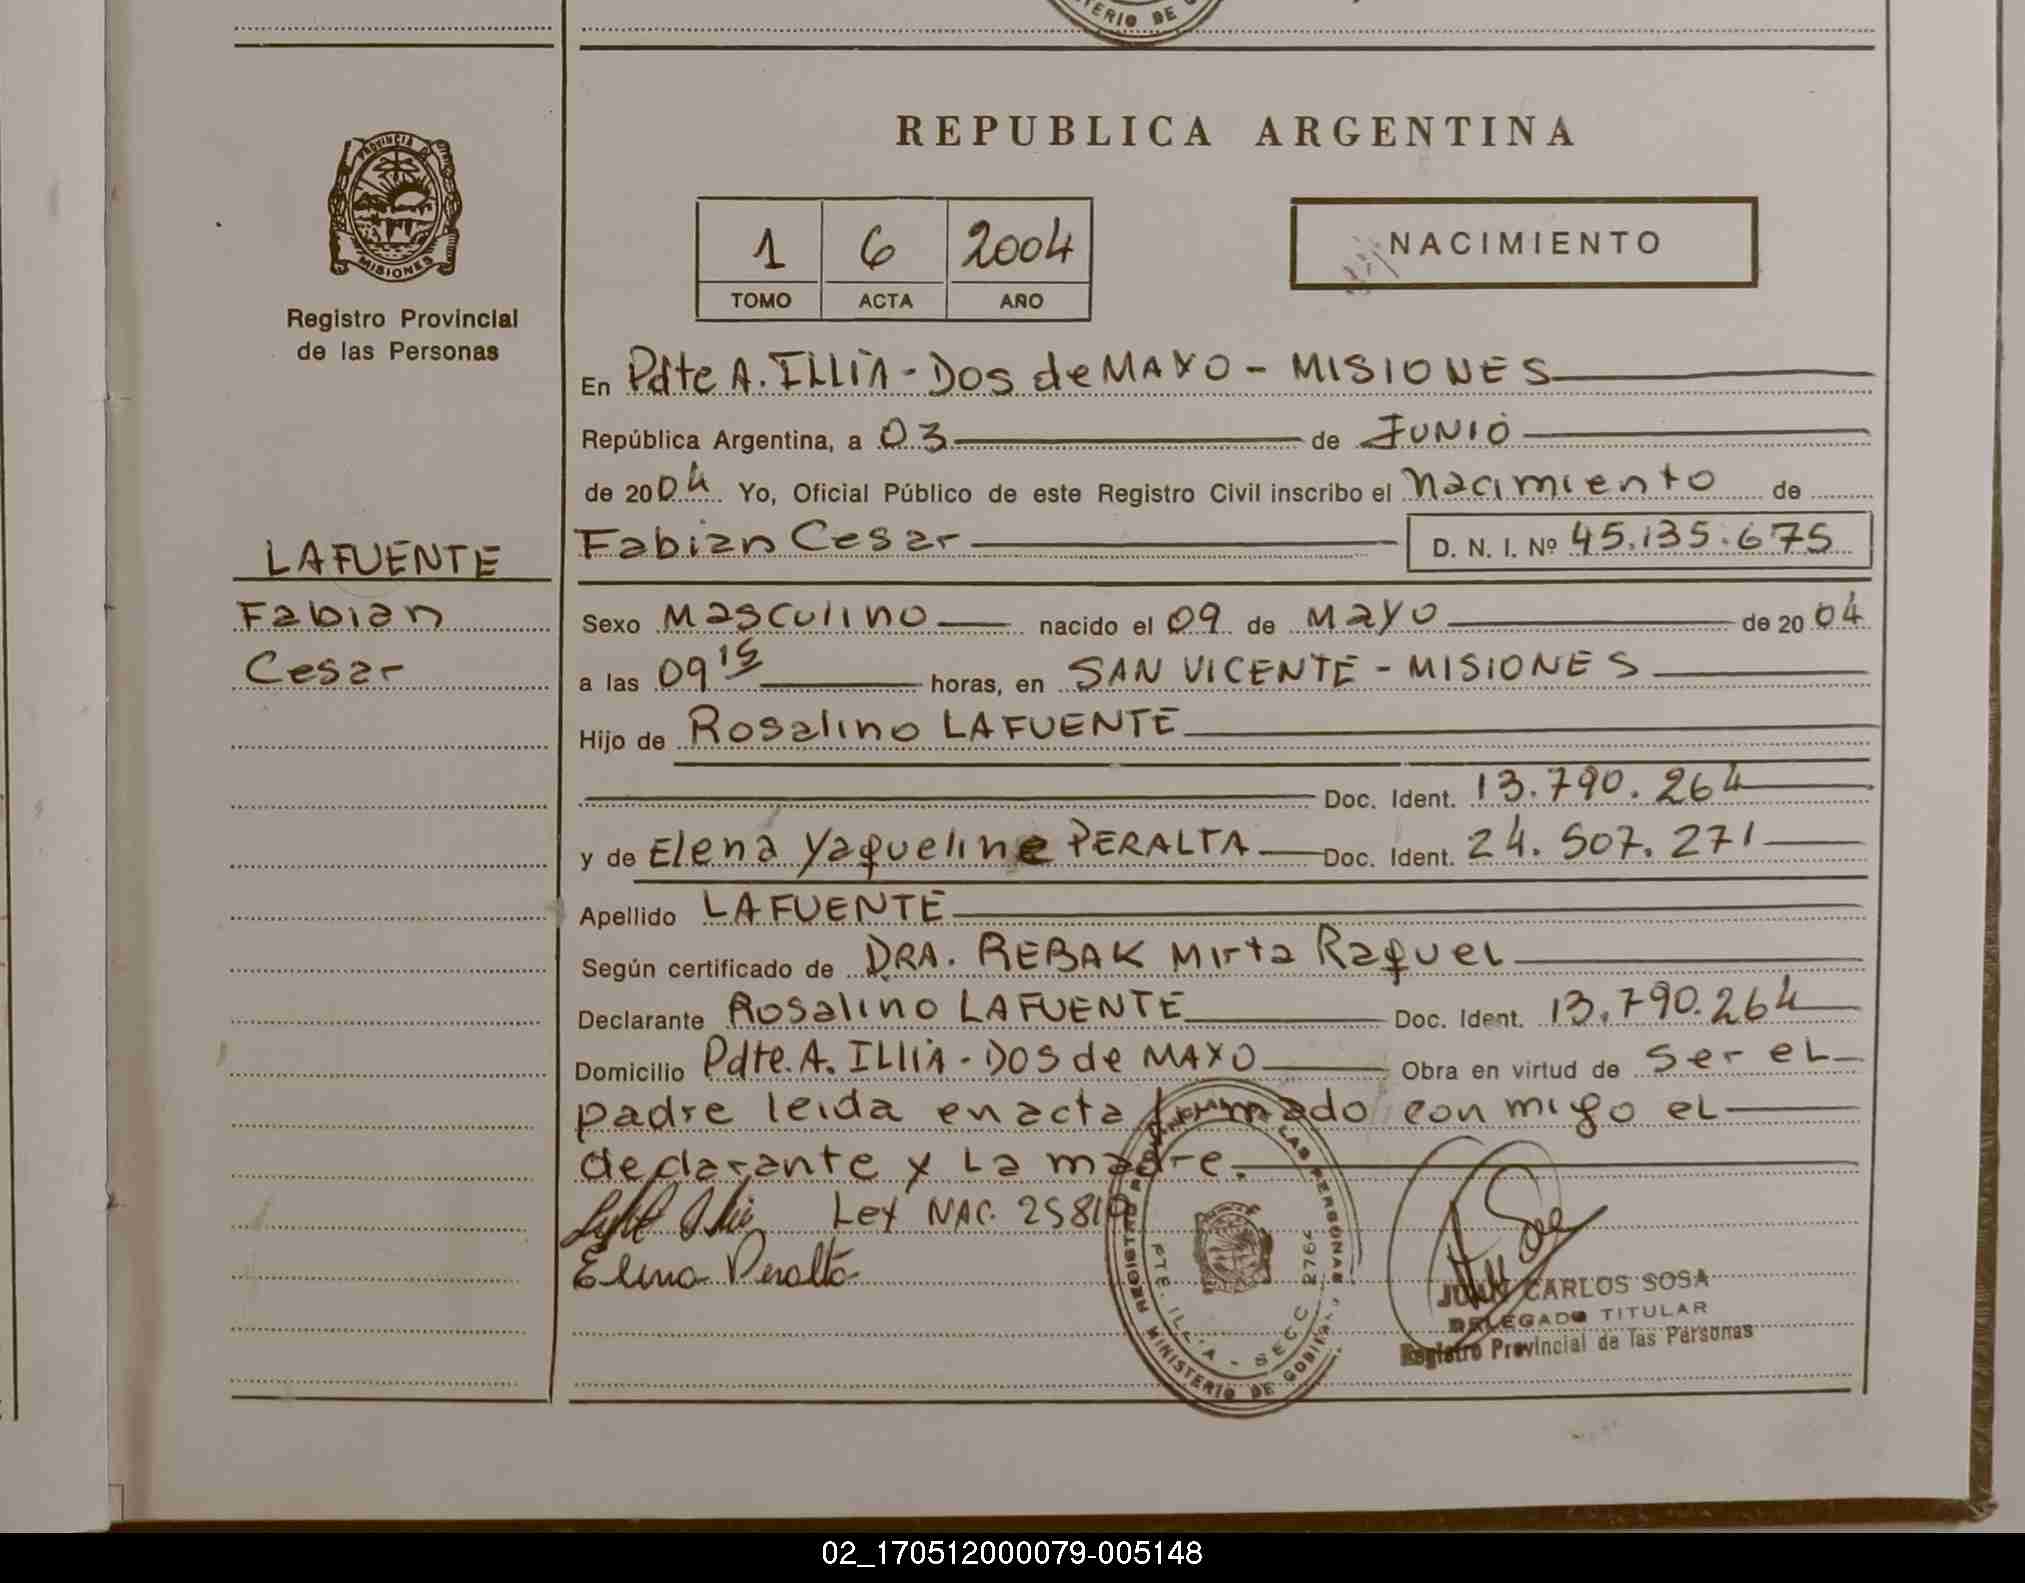 TERIO DE G
REPUBLICA ARGENTINA
PROVINCIA DE
MISIONES
Registro Provincial
de las Personas
1 6 2004
TOMO ACTA AÑO
NACIMIENTO
En Pdte A. ILLIA - Dos de MAYO - MISIONES
República Argentina, a 03 de JUNIO
de 2004 Yo, Oficial Público de este Registro Civil inscribo el Nacimiento de
Fabian Cesar D. N. I. Nº 45.135.675
LAFUENTE
Fabian
Cesar
Sexo Masculino nacido el 09 de MAYO de 2004
a las 09 15 horas, en SAN VICENTE - MISIONES
Hijo de Rosalino LAFUENTE
Doc. Ident. 13.790.264
y de Elena Yaqueline PERALTA Doc. Ident. 24.507.271
Apellido LAFUENTE
Según certificado de DRA. REBAK Mirta Raquel
Declarante Rosalino LAFUENTE Doc. Ident. 13.790.264
Domicilio Pdte. A. ILLIA - DOS de MAYO Obra en virtud de ser el
padre leida en acta firmado conmigo el
declarante y La madre.
Ley NAC. 25819
Elena Peralta
REGISTRO PROVINCIAL DE LAS PERSONAS
MINISTERIO DE GOBIER
PTE. ILLIA - SECC 2764
JUAN CARLOS SOSA
DELEGADO TITULAR
Registro Provincial de las Personas
02_170512000079-005148